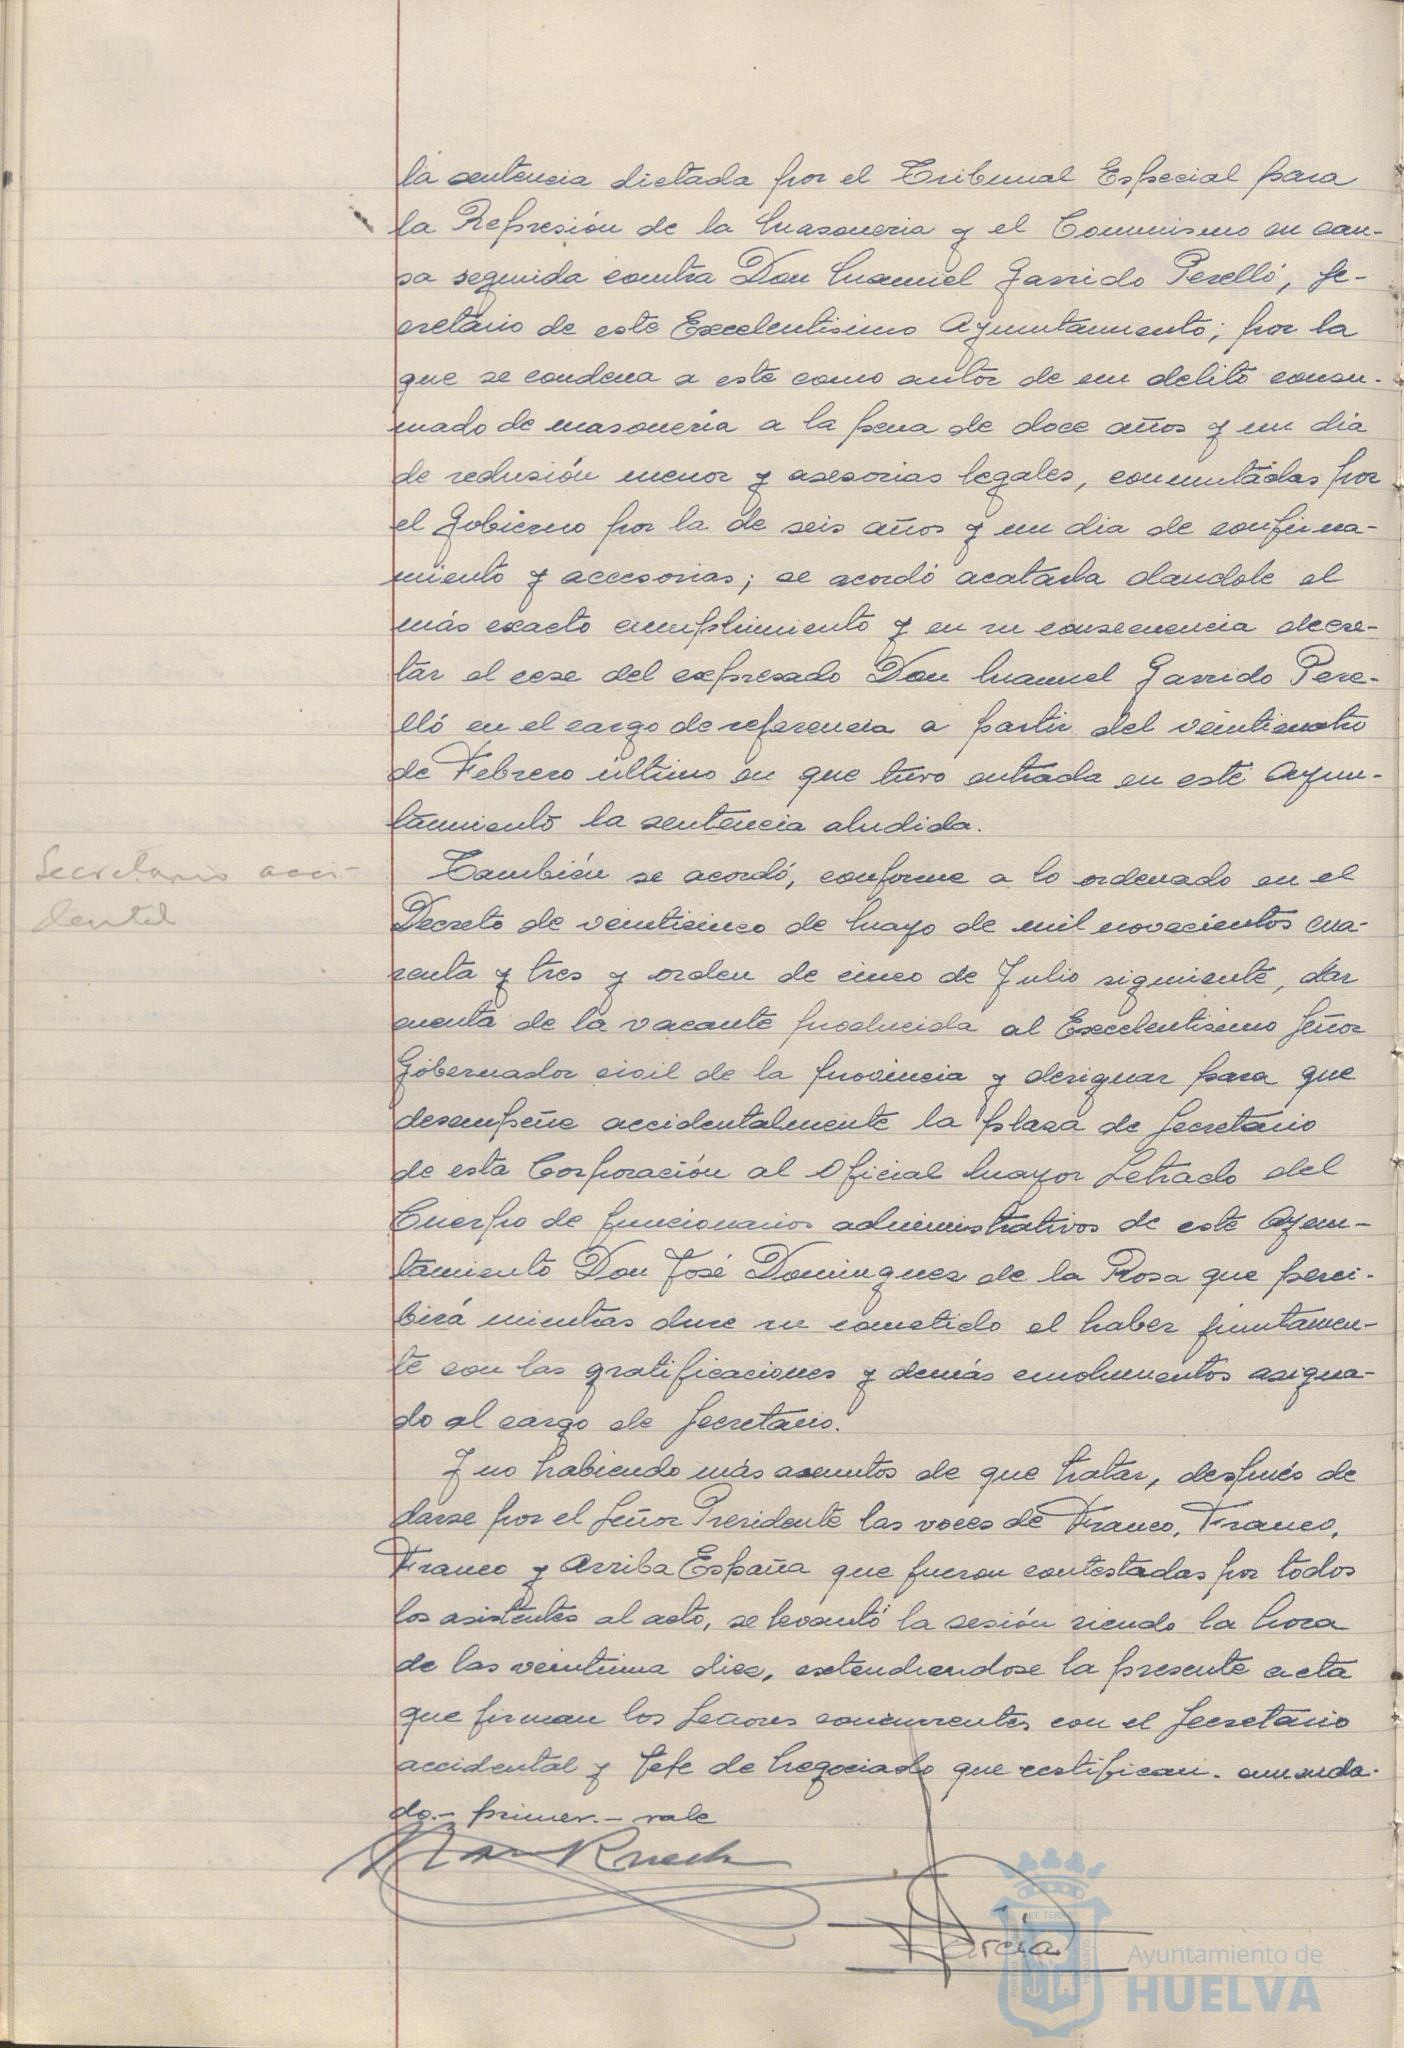 la sentencia dictada por el Tribunal Especial para
la Represión de la Masoneria y el Comunismo en cau-
sa seguida contra Don Manuel Garrido Perelló, Se-
cretario de este Excelentisimo Ayuntamiento; por la
que se condena a este como autor de un delito consu-
mado de masoneria a la pena de doce años y un dia
de reclusión menor y asesorias legales, conmutadas por
el Gobierno por la de seis años y un dia de confina-
miento y accesorias; se acordó acatarla dandole el
más exacto cumplimiento y en su consecuencia decre-
tar el cese del expresado Don Manuel Garrido Pere-
lló en el cargo de referencia a partir del veinticuatro
de Febrero último en que tuvo entrada en este Ayun-
tamiento la sentencia aludida.
Secretario acci-
dental
También se acordó, conforme a lo ordenado en el
Decreto de veinticinco de Mayo de mil novecientos cua-
renta y tres y orden de cinco de Julio siguiente, dar
cuenta de la vacante producida al Excelentisimo Señor
Gobernador civil de la provincia y designar para que
desempeñe accidentalmente la plaza de Secretario
de esta Corporación al Oficial Mayor Letrado del
Cuerpo de funcionarios administrativos de este Ayun-
tamiento Don José Dominguez de la Rosa que perci-
birá mientras dure su cometido el haber juntamen-
te con las gratificaciones y demás emolumentos asigna-
do al cargo de Secretario.
Y no habiendo más asuntos de que tratar, después de
darse por el Señor Presidente las voces de Franco, Franco,
Franco y Arriba España que fueron contestadas por todos
los asistentes al acto, se levantó la sesión siendo la hora
de las veintiuna diez, extendiendose la presente acta
que firman los Señores concurrentes con el Secretario
accidental y Jefe de Negociado que certifican. enmenda-
do.- primer.- vale
García
Ayuntamiento de
HUELVA